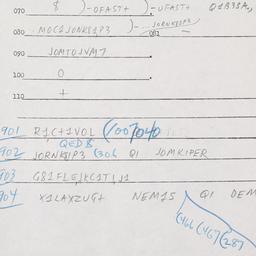 070 $ )-OFAST+ )-UFAST+ Q1B3SA,
080 MOC1JONKSIP3 )- JORNKSIP3
082
090 JOMTOJVM7
100 O
110 +
901 R1C+1VOL (007040
QED8
902 JORNKSIP3 (306 Q1 JOMKIPER
903 G81FLEJKC1T1J1
904 X1LAXZUG+ NEM1S Q1 DEM
(466 (467 (287